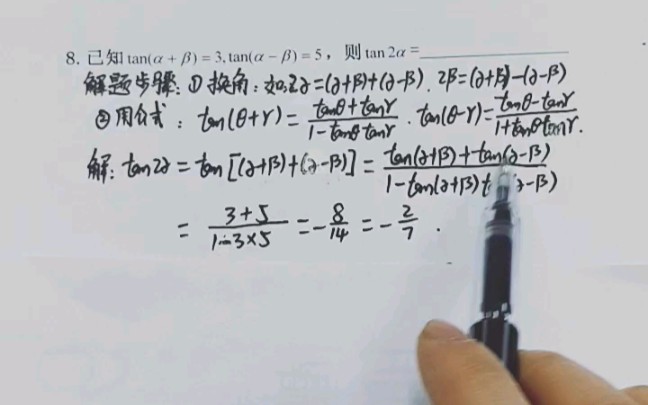 8. 已知 tan(α + β) = 3, tan(α − β) = 5， 则 tan 2α =
解题步骤: ① 换角: 如2α=(α+β)+(α-β). 2β=(α+β)-(α-β)
② 用公式: tan(θ+γ) = (tanθ+tanγ)/(1-tanθtanγ) . tan(θ-γ) = (tanθ-tanγ)/(1+tanθtanγ).
解: tan2α = tan[(α+β)+(α-β)] = (tan(α+β)+tan(α-β))/(1-tan(α+β)t α-β))
= (3+5)/(1-3×5) = -8/14 = -2/7 .